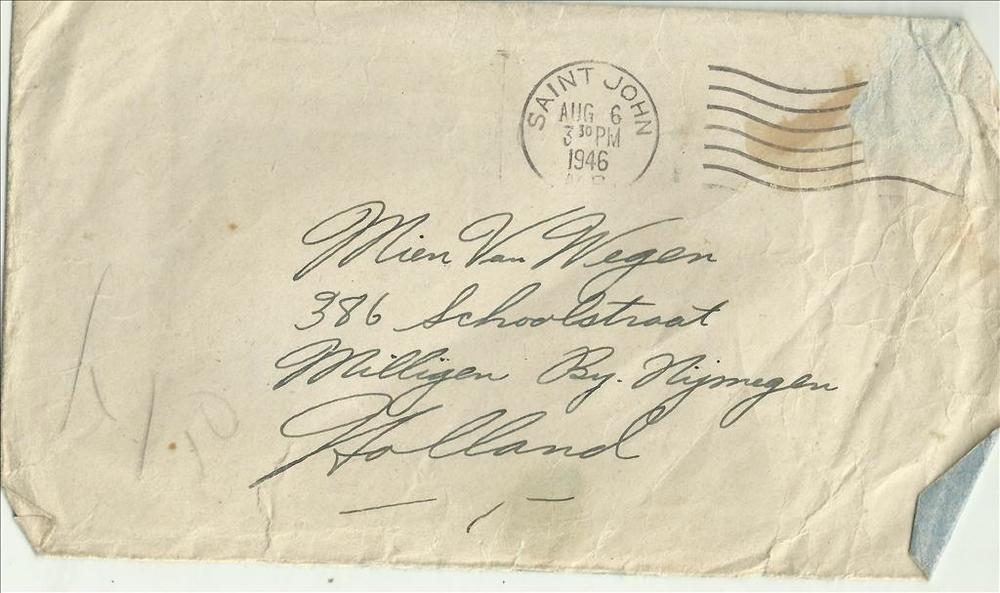 SAINT JOHN
AUG 6
3 30 PM
1946
Mien Van Wegen
386 Schoolstraat
Milligen By. Nijmegen
Holland